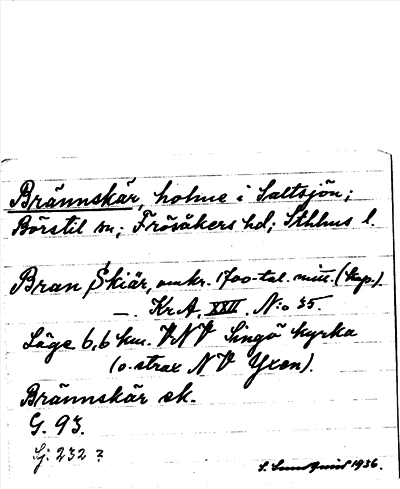 Brännskär, holme i Saltsjön;
Börstil sn; Frösåkers hd; Sthlms l.
Bran Skiär, omkr. 1700-tal. mitt. (kop.)
—. Kr A. XXII. N:o 35.
Läge 6,6 km. VNV Singö kyrka
(o. strax NV Yxen).
Brännskär ek.
G. 93.
Gj: 232 ?
S. Lundquist 1936.